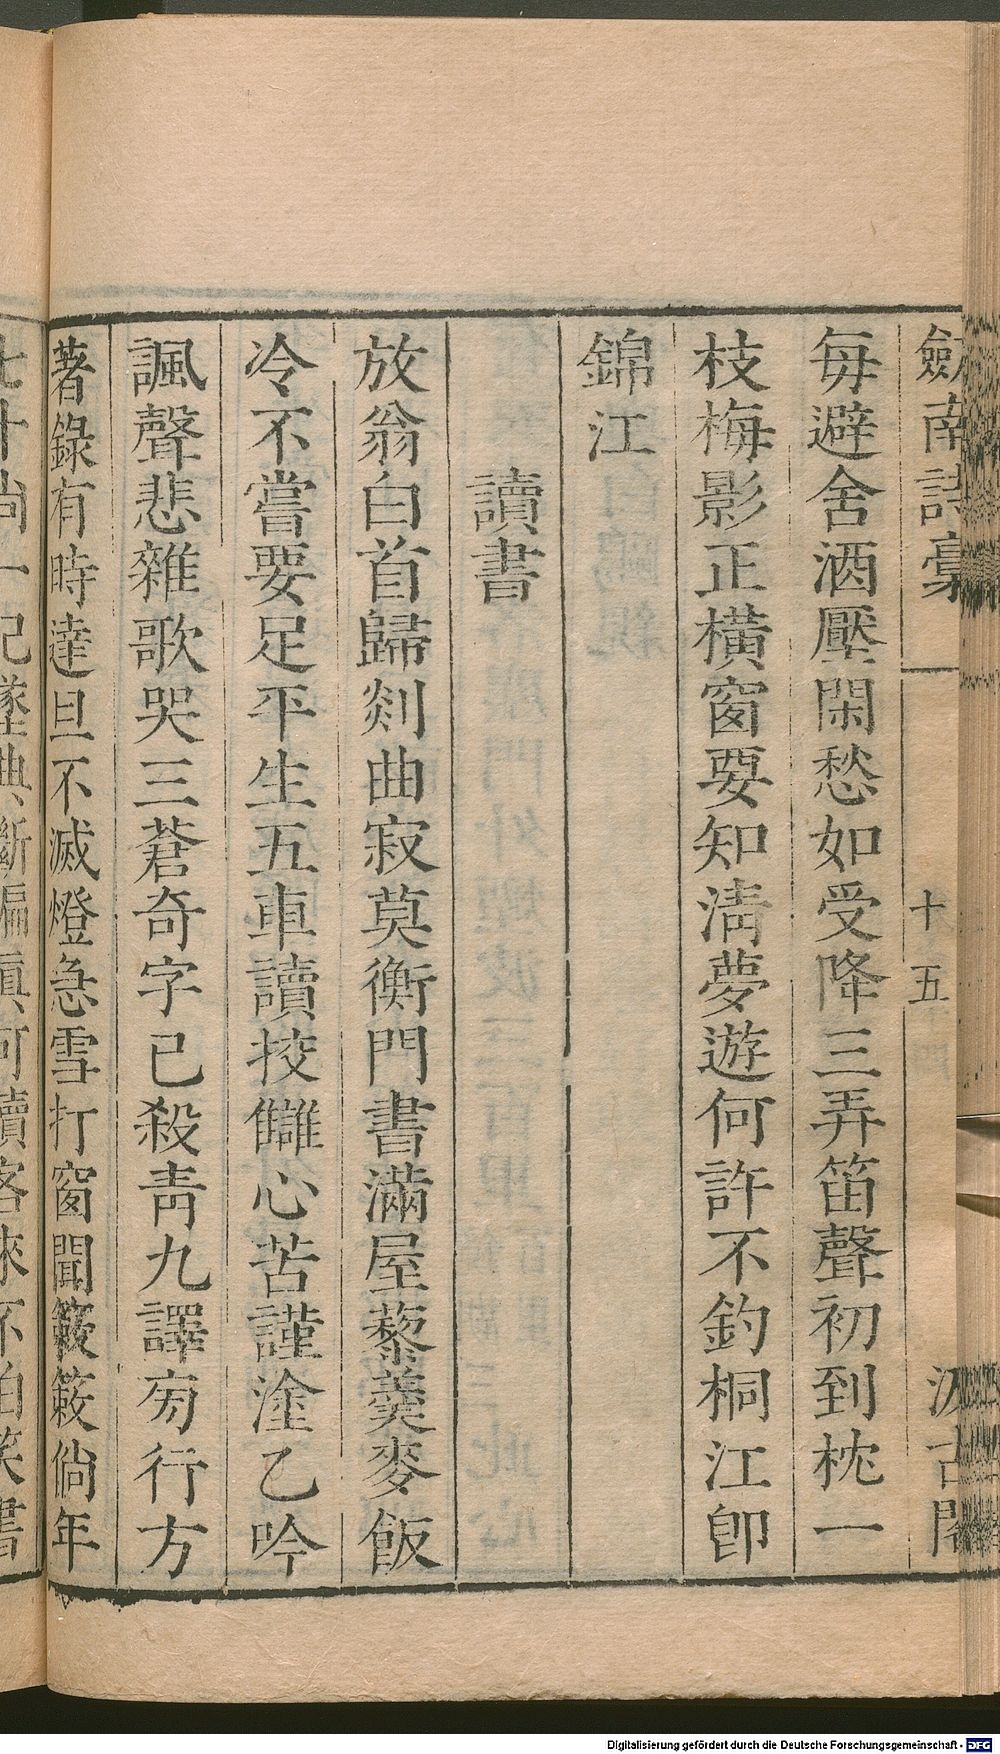 劒南詩稾
十五
汲古閣
每避舍酒壓閑愁如受降三弄笛聲初到枕一
枝梅影正橫窗要知淸夢遊何許不釣桐江卽
錦江
讀書
放翁白首歸剡曲寂莫衡門書滿屋藜羹麥飯
冷不嘗要足平生五車讀挍讎心苦謹塗乙吟
諷聲悲雜歌哭三蒼奇字已殺靑九譯旁行方
著錄有時達旦不滅燈急雪打窗聞簌簌倘年
七十尚一記墜典斷編眞可讀客來不怕笑書
Digitalisierung gefördert durch die Deutsche Forschungsgemeinschaft - DFG